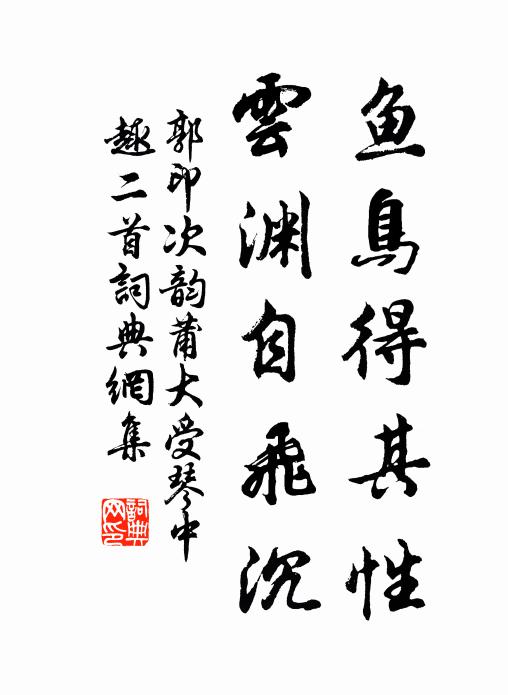 鱼鳥得其性
雲渊自飛沉
郭印次韵蒲大受琴中
趣二首詞典網集
詞典网印